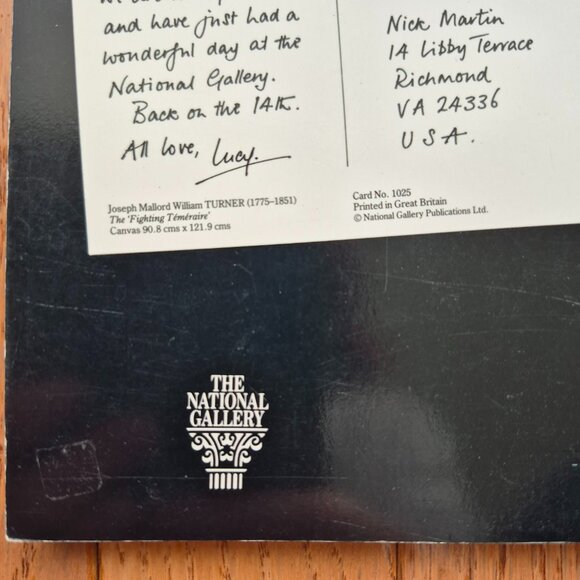 and have just had a
wonderful day at the
National Gallery.
Back on the 14th.
All love, Lucy.
Nick Martin
14 Libby Terrace
Richmond
VA 24336
USA.
Joseph Mallord William TURNER (1775–1851)
The 'Fighting Téméraire'
Canvas 90.8 cms x 121.9 cms
Card No. 1025
Printed in Great Britain
© National Gallery Publications Ltd.
THE
NATIONAL
GALLERY